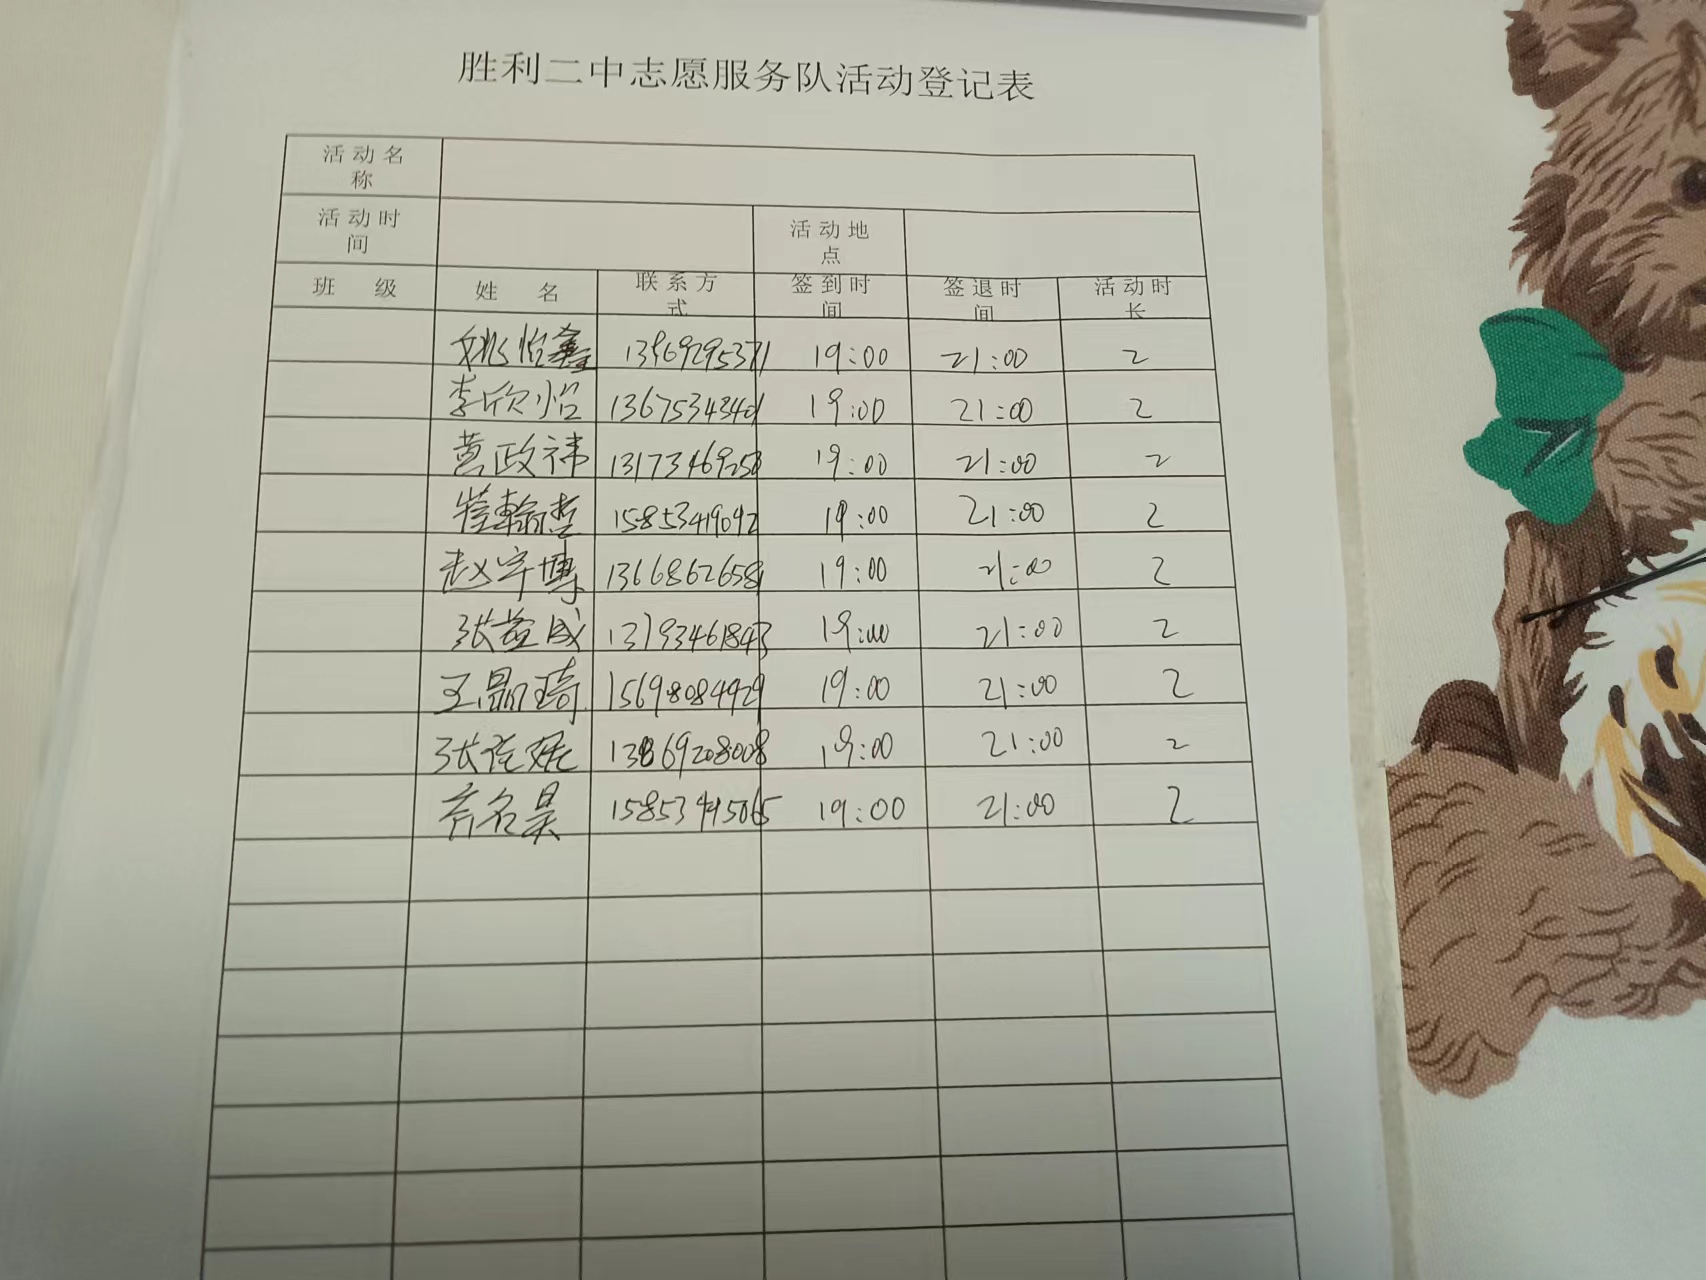 胜利二中志愿服务队活动登记表
活动名称
活动时间 活动地点
班 级 姓 名 联系方式 签到时间 签退时间 活动时长
姚怡鑫 13969295371 19:00 21:00 2
李欣怡 13675343401 19:00 21:00 2
黄政祎 13173469258 19:00 21:00 2
崔翰哲 15853419092 19:00 21:00 2
赵宇博 13668626581 19:00 21:00 2
张益成 13793461843 19:00 21:00 2
王晶琦 15698084929 19:00 21:00 2
张佳 13869208008 19:00 21:00 2
齐名昊 15853495065 19:00 21:00 2